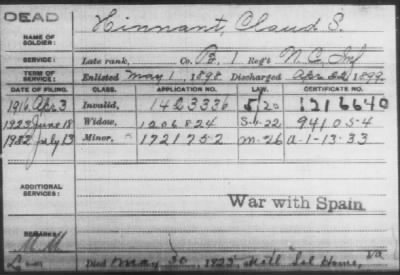 DEAD
NAME OF SOLDIER: Hinnant, Claud S.
SERVICE: Late rank, Co. B, 1 Reg't N.C. Inf
TERM OF SERVICE: Enlisted May 1, 1898. Discharged Apr 22, 1899.
DATE OF FILING. CLASS. APPLICATION NO. LAW. CERTIFICATE NO.
1916 Apr 3 Invalid, 1423336 5/20 1216640
1923 June 18 Widow, 1206824 S-1-22 941054
1932 July 13 Minor, 1721752 M-26 a-1-13-33
ADDITIONAL SERVICES:
War with Spain
REMARKS:
Died May 30, 1923, Sol Home, Va